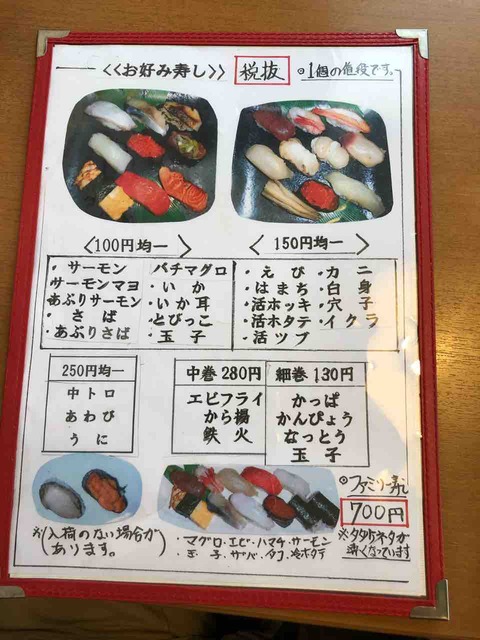 <<お好み寿し>> 税抜 ◎1個の値段です。
<100円均一>
・サーモン バチマグロ
サーモンマヨ ・いか
あぶりサーモン ・いか耳
・さば ・とびっこ
・あぶりさば ・玉子
<150円均一>
・えび ・カニ
・はまち ・白身
・活ホッキ ・穴子
・活ホタテ ・イクラ
・活ツブ
250円均一
中トロ
あわび
うに
中巻 280円
エビフライ
から揚
鉄火
細巻 130円
かっぱ
かんぴょう
なっとう
玉子
※入荷のない場合が
あります。
・マグロ・エビ・ハマチ・サーモン
・玉子・サバ・タコ・活ホタテ
◎ファミリー寿し
700円